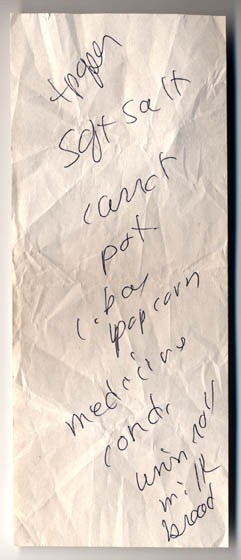 tpaper
Soft Salt
carrot
pot
popcorn
medicine
cond.
milk
bread